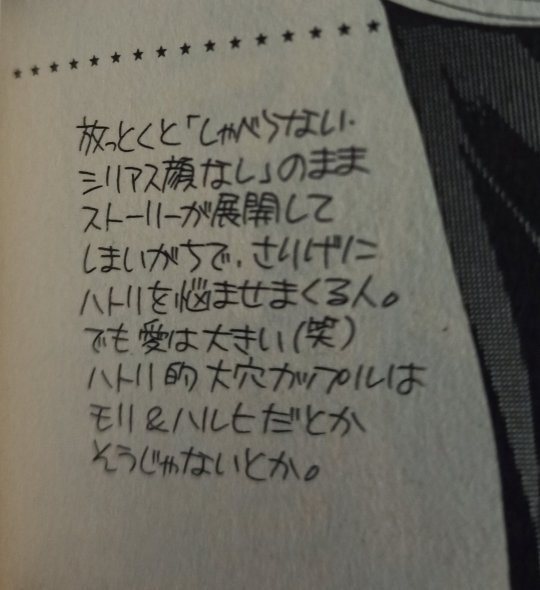 放っとくと「しゃべらない・
シリアス顔なし」のまま
ストーリーが展開して
しまいがちで、さりげに
ハトリを悩ませまくる人。
でも愛は大きい(笑)
ハトリ的大穴カップルは
モリ&ハルヒだとか
そうじゃないとか。